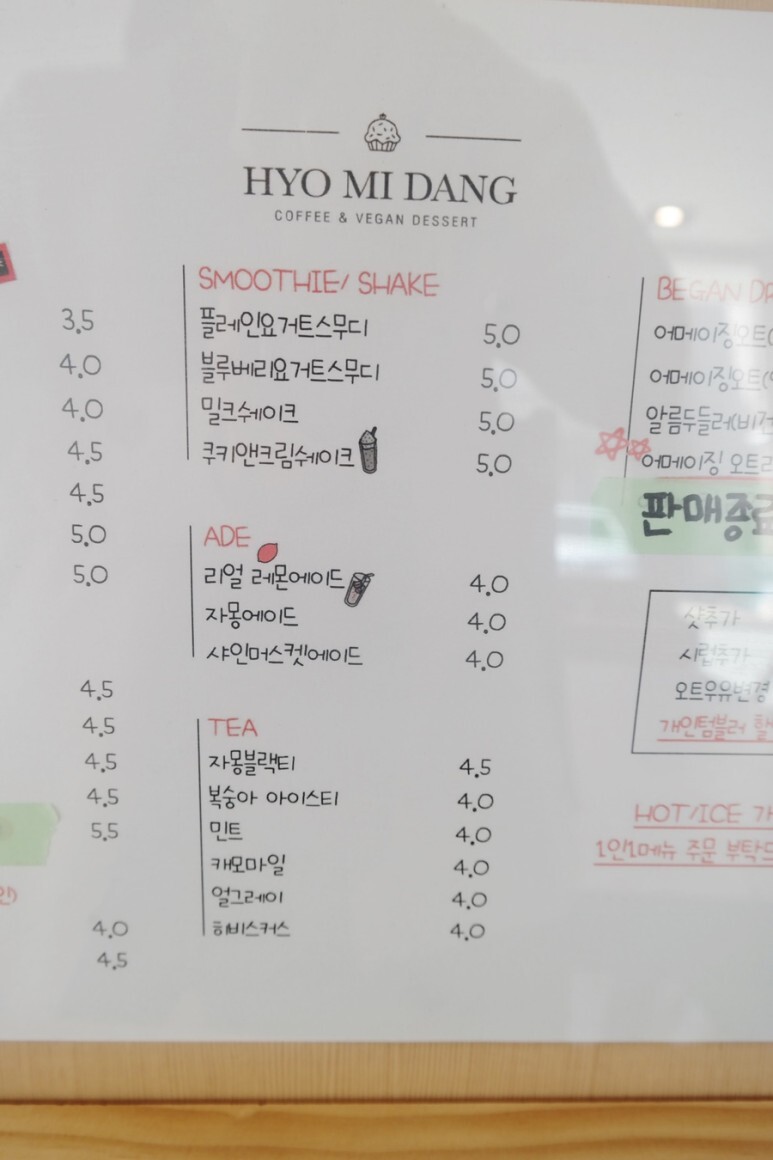 HYO MI DANG
COFFEE & VEGAN DESSERT
3.5
4.0
4.0
4.5
4.5
5.0
5.0
4.5
4.5
4.5
4.5
5.5
4.0
4.5
SMOOTHIE/ SHAKE
플레인요거트스무디 5.0
블루베리요거트스무디 5.0
밀크쉐이크 5.0
쿠키앤크림쉐이크 5.0
ADE
리얼 레몬에이드 4.0
자몽에이드 4.0
샤인머스켓에이드 4.0
TEA
자몽블랙티 4.5
복숭아 아이스티 4.0
민트 4.0
캐모마일 4.0
얼그레이 4.0
히비스커스 4.0
BEGAN
어메이징오트(
어메이징오트(
알름두들러(비건
어메이징 오트
판매종료
샷추가
시럽추가
오트우유변경
개인텀블러
HOT/ICE
1인1메뉴 주문 부탁